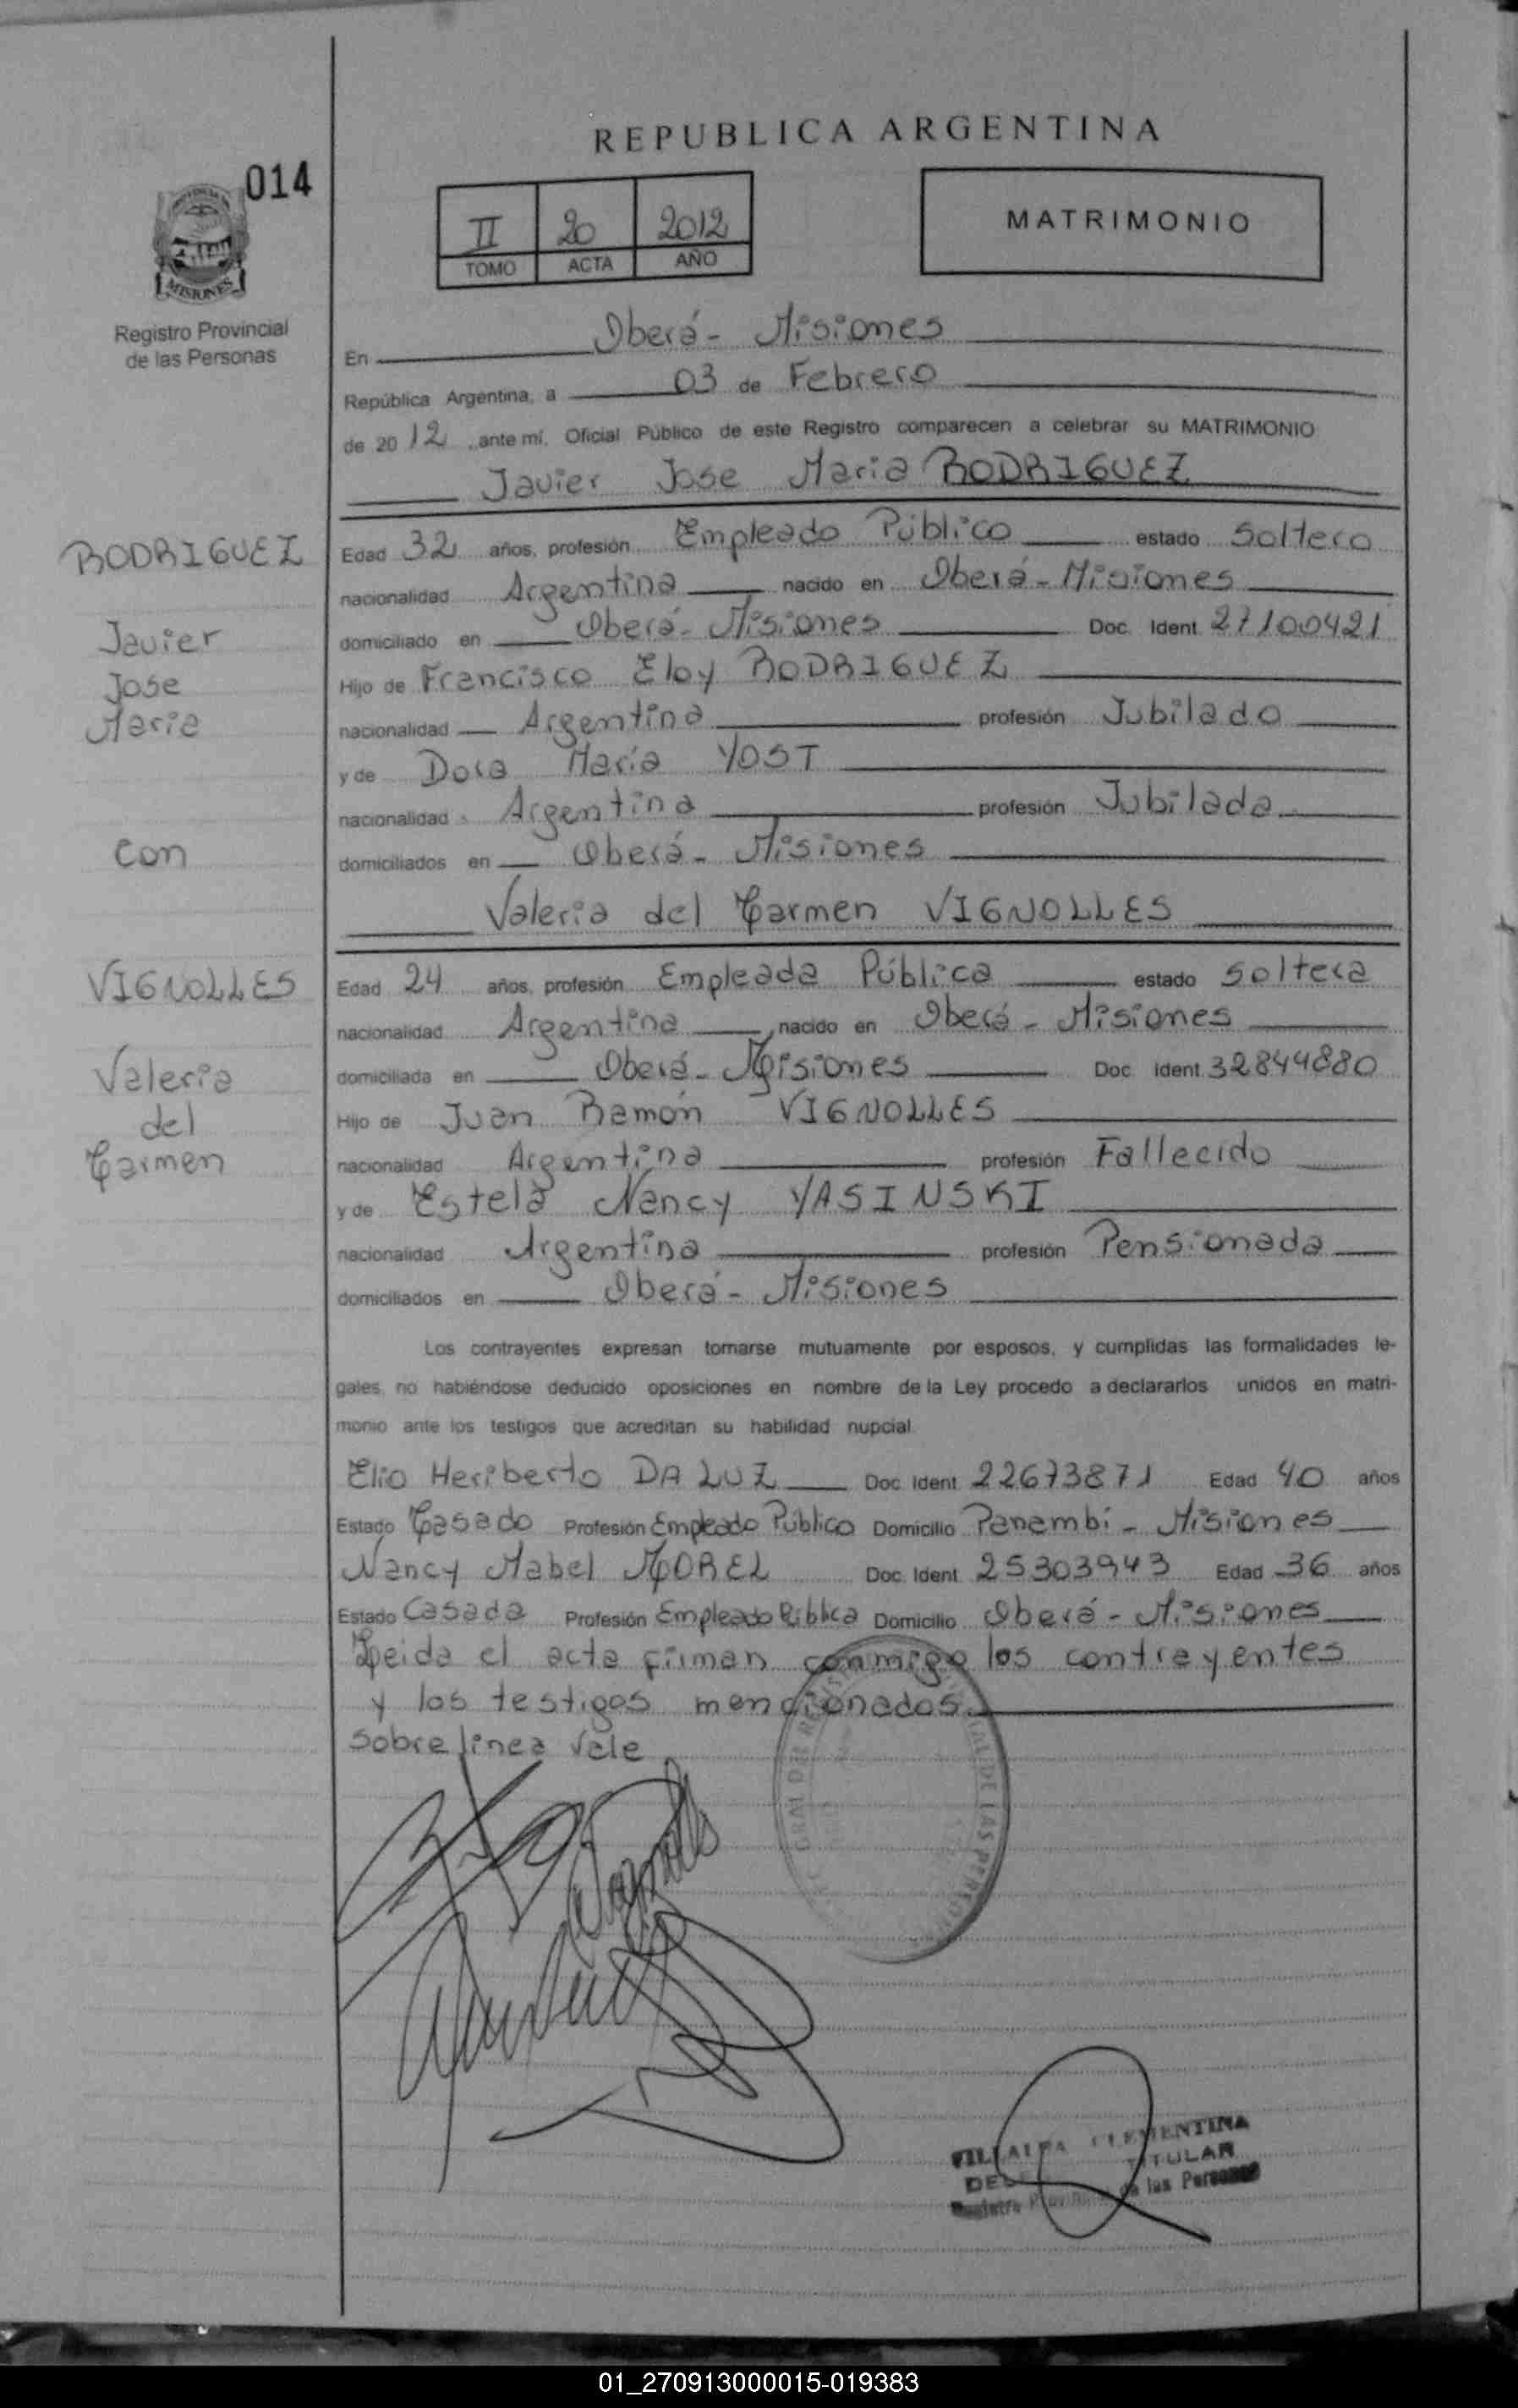 REPUBLICA ARGENTINA
014
MISIONES
Registro Provincial
de las Personas
II 20 2012
TOMO ACTA AÑO
MATRIMONIO
En Oberá - Misiones
República Argentina, a 03 de Febrero
de 2012 ante mí, Oficial Público de este Registro comparecen a celebrar su MATRIMONIO
Javier Jose Maria RODRIGUEZ
RODRIGUEZ
Javier
Jose
Maria
con
VIGNOLLES
Valeria
del
Carmen
Edad 32 años, profesión Empleado Público estado Soltero
nacionalidad Argentina nacido en Oberá - Misiones
domiciliado en Oberá - Misiones Doc. Ident. 27100421
Hijo de Francisco Eloy RODRIGUEZ
nacionalidad Argentina profesión Jubilado
y de Dora María YOST
nacionalidad Argentina profesión Jubilada
domiciliados en Oberá - Misiones
Valeria del Carmen VIGNOLLES
Edad 24 años, profesión Empleada Pública estado Soltera
nacionalidad Argentina nacido en Oberá - Misiones
domiciliada en Oberá - Misiones Doc. Ident. 32844880
Hijo de Juan Ramón VIGNOLLES
nacionalidad Argentina profesión Fallecido
y de Estela Nancy YASINSKI
nacionalidad Argentina profesión Pensionada
domiciliados en Oberá - Misiones
Los contrayentes expresan tomarse mutuamente por esposos, y cumplidas las formalidades le-
gales, no habiéndose deducido oposiciones en nombre de la Ley procedo a declararlos unidos en matri-
monio ante los testigos que acreditan su habilidad nupcial.
Elio Heriberto DA LUZ Doc. Ident. 22673871 Edad 40 años
Estado Casado Profesión Empleado Público Domicilio Panambí - Misiones
Nancy Mabel MOREL Doc. Ident. 25303943 Edad 36 años
Estado Casada Profesión Empleado Pública Domicilio Oberá - Misiones
Leida el acta firman conmigo los contrayentes
y los testigos mencionados.
Sobre linea Vale
DE LAS PERSONAS
VILLALBA CLEMENTINA
TITULAR
de las Personas
01_270913000015-019383